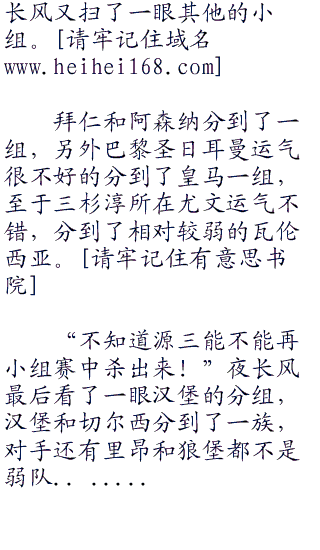 长风又扫了一眼其他的小
组。[请牢记住域名
www.heihei168.com]
拜仁和阿森纳分到了一
组，另外巴黎圣日耳曼运气
很不好的分到了皇马一组，
至于三杉淳所在尤文运气不
错，分到了相对较弱的瓦伦
西亚。[请牢记住有意思书
院]
“不知道源三能不能再
小组赛中杀出来！”夜长风
最后看了一眼汉堡的分组，
汉堡和切尔西分到了一族，
对手还有里昂和狼堡都不是
弱队.. .....